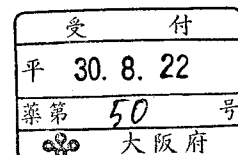 受付
平 30.8.22
薬第 50 号
大阪府